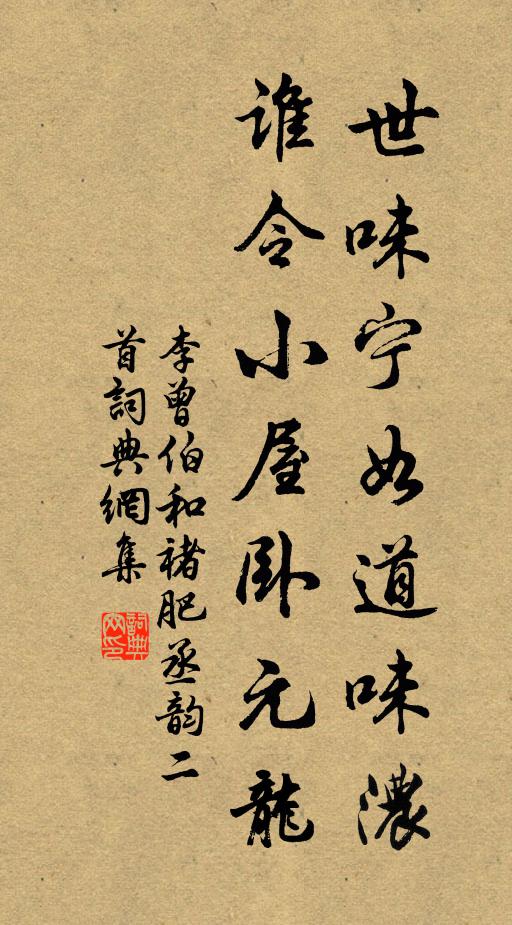 世味宁如道味濃
谁令小屋卧元龍
李曾伯和褚肥丞韵二
首詞典網集
詞典网印